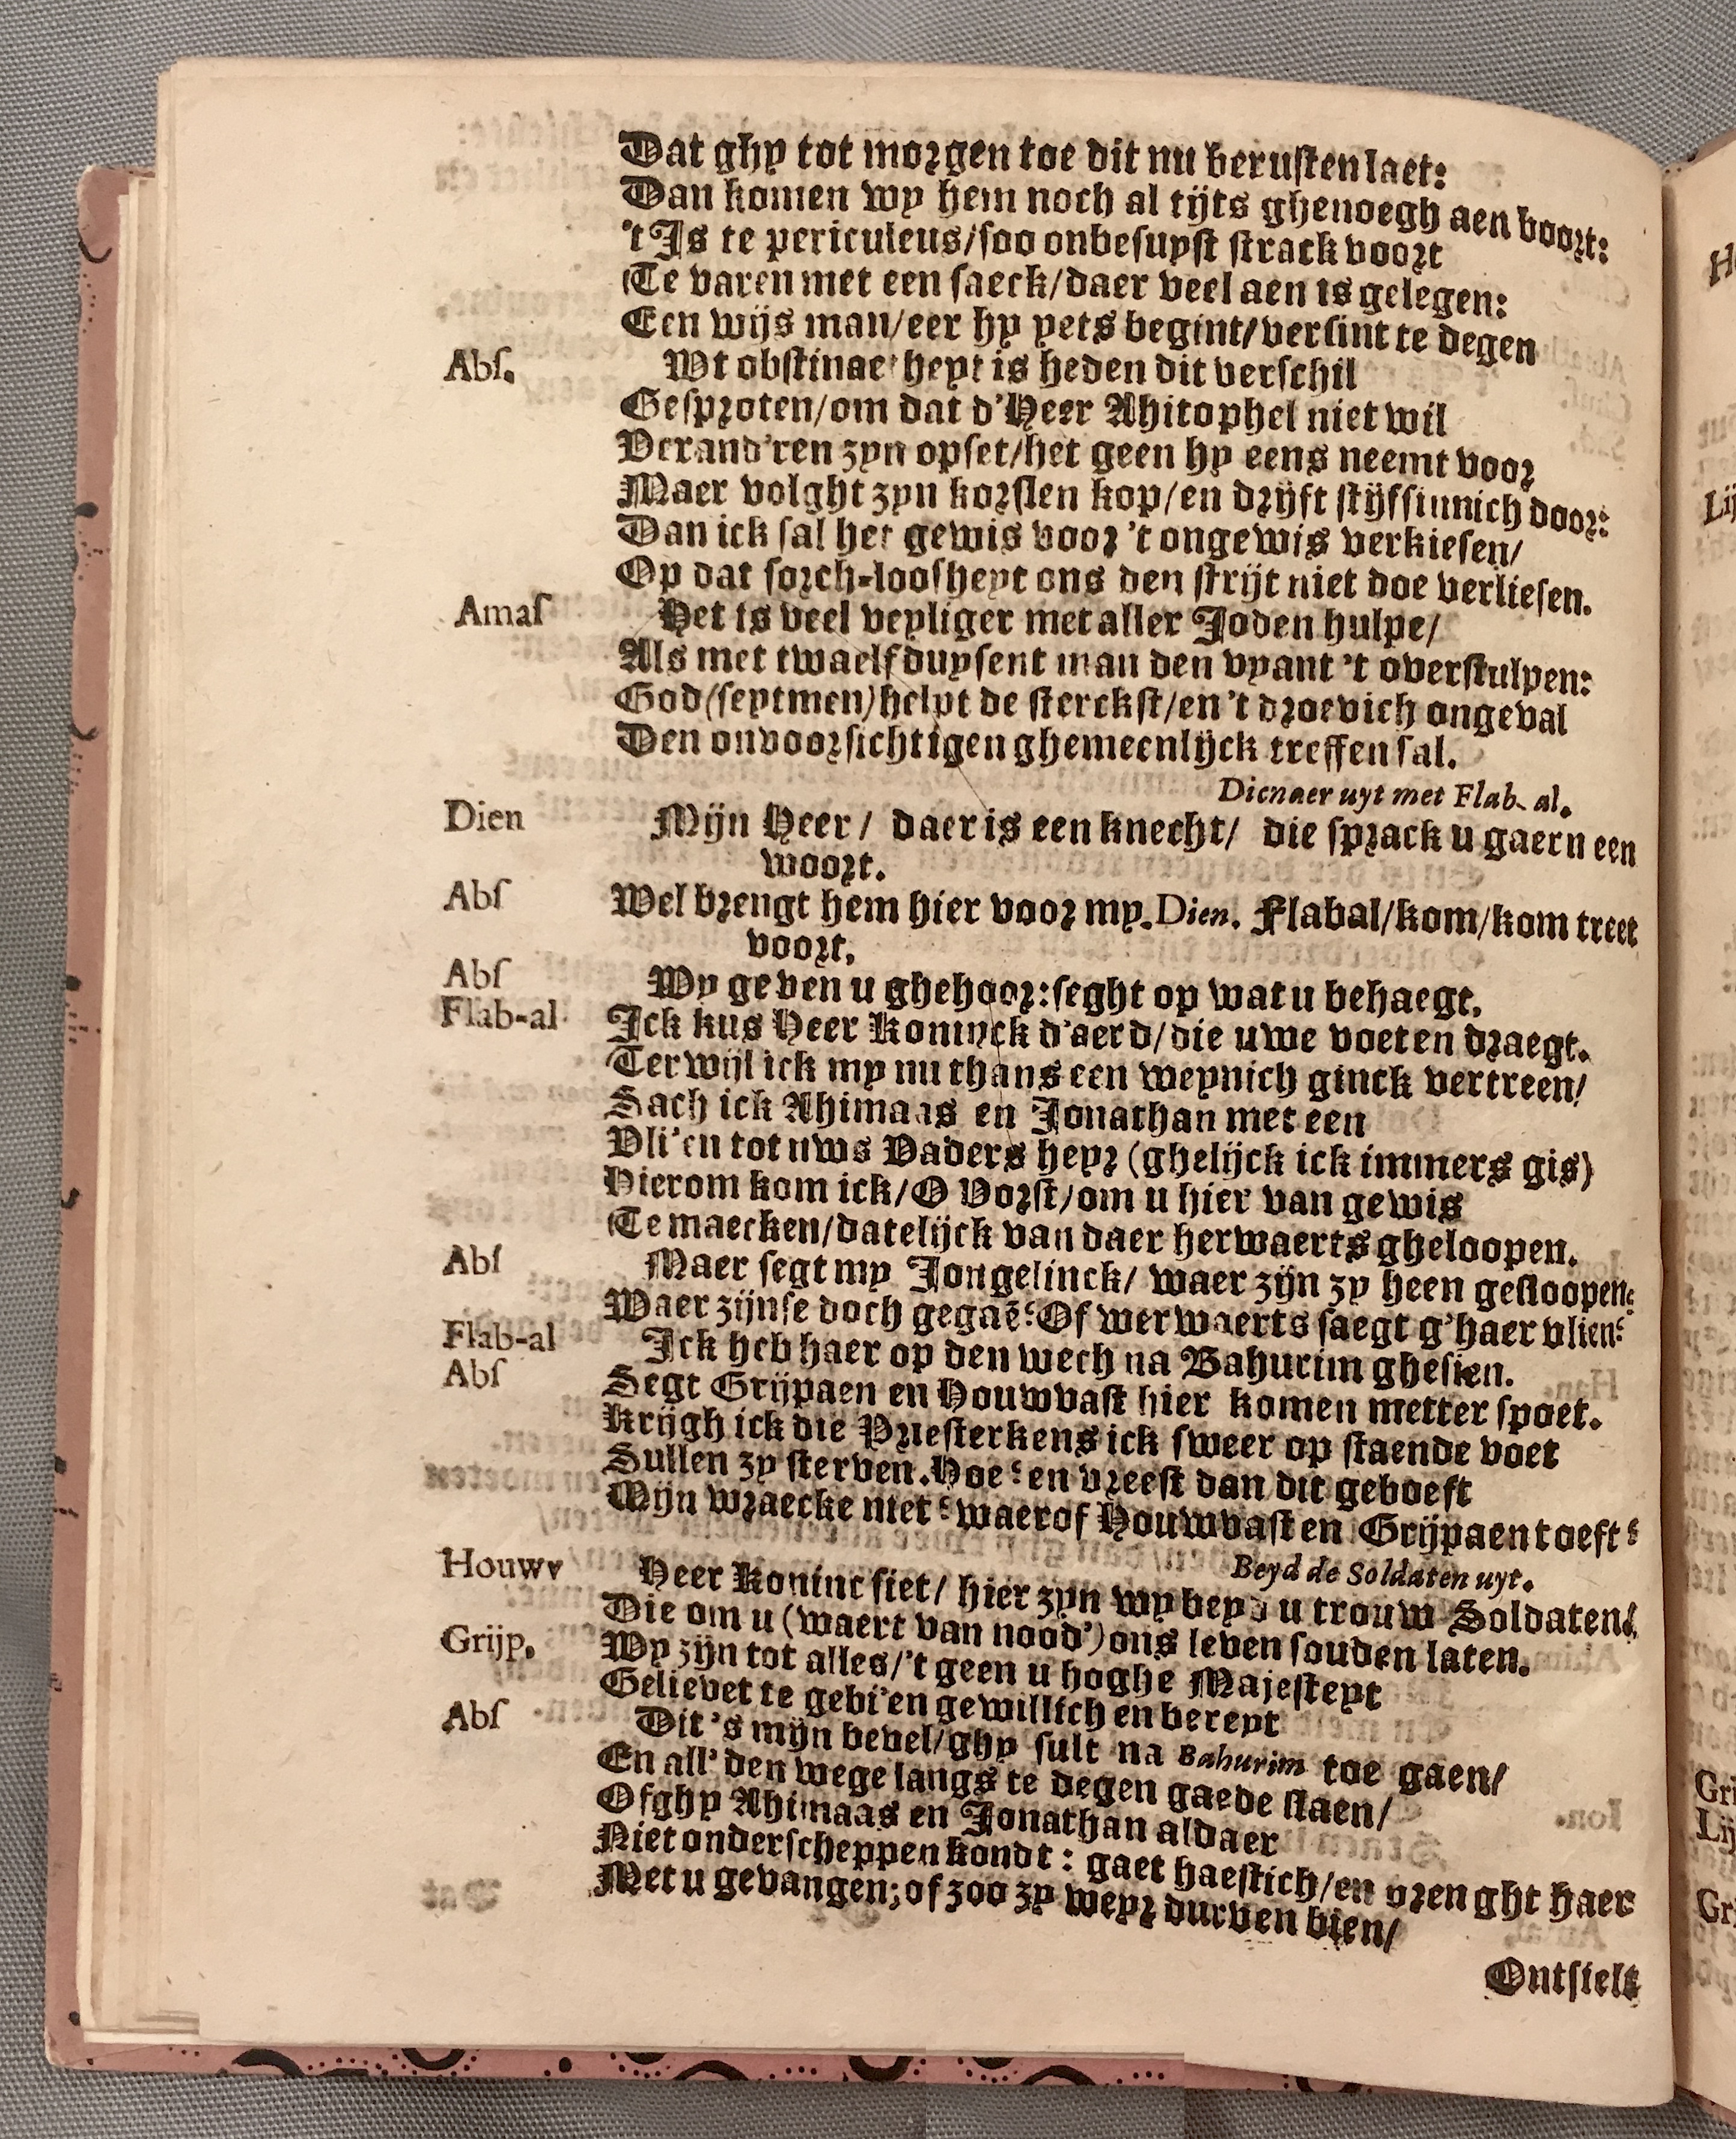 Dat ghy tot morgen toe dit nu berusten laet:
Dan komen wy hem noch al tijts ghenoegh aen boort:
't Is te periculeus/soo onbesuyst strack voort
Te varen met een saeck/daer veel aen is gelegen:
Een wijs man/eer hy yets begint/versint te degen
Abs. Wt obstinaetheyt is heden dit verschil
Gesproten/om dat d'Heer Ahitophel niet wil
Verand'ren zyn opset/het geen hy eens neemt voor
Maer volght zyn korslen kop/en drijft stijfsinnich door:
Dan ick sal het gewis voor 't ongewis verkiesen/
Op dat sorch-loosheyt ons den strijt niet doe verliesen.
Amas Het is veel veyliger met aller Joden hulpe/
Als met twaelf duysent man den vyant 't overstulpen:
God (seytmen) helpt de sterckst/en 't droevich ongeval
Den onvoorsichtigen ghemeenlijck treffen sal.
Dienaer uyt met Flab. al.
Dien Mijn Heer/ daer is een knecht/ die sprack u gaern een
woort.
Abs Wel brengt hem hier voor my. Dien. Flabal/kom/kom treet
voort.
Abs Wy geven u ghehoor: seght op wat u behaegt.
Flab-al Ick kus Heer Koninck d'aerd/die uwe voeten draegt.
Terwijl ick my nu thans een weynich ginck vertreen/
Sach ick Ahimaas en Jonathan met een
Vli'en tot uws Vaders heyr (ghelijck ick immers gis)
Hierom kom ick/O Vorst/om u hier van gewis
Te maecken/datelijck van daer herwaerts gheloopen.
Abs Maer segt my Jongelinck/ waer zijn zy heen geslopen?
Waer zijnse doch gegaē? Of werwaerts saegt g'haer vlien?
Flab-al Ick heb haer op den wech na Bahurim ghesien.
Abs Segt Grijpaen en Houwvast hier komen metter spoet.
Krijgh ick die Priesterkens ick sweer op staende voet
Sullen zy sterven. Hoe? en vreest dan dit geboeft
Mijn wraecke niet? waer of Houwvast en Grijpaen toeft?
Beyd de Soldaten uyt.
Houwv Heer Koninc siet/ hier zyn wy beyd u trouw Soldaten/
Die om u (waert van nood') ons leven souden laten.
Grijp. Wy zijn tot alles/'t geen u hoghe Majesteyt
Gelievet te gebi'en gewillich en bereyt
Abs Dit 's mijn bevel/ghy sult na Bahurim toe gaen/
En all' den wege langs te degen gaede slaen/
Of ghy Ahimaas en Jonathan aldaer
Niet onderscheppen kondt: gaet haestich/en brenght haer
Met u gevangen; of zoo zy weyr durven bien/
Ontsielt